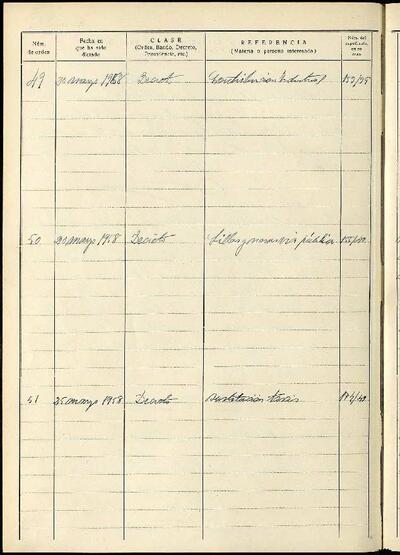 Núm. de orden
Fecha en que ha sido dictado
CLASE
(Orden, Bando, Decreto, Providencia, etc.)
REFERENCIA
(Materia o persona interesada)
Núm. del expediente
49 20 mayo 1958 Decreto Contribución Industrial
50 20 mayo 1958 Decreto Sillas y mesas vía pública
51 25 mayo 1958 Decreto sustitución taxis